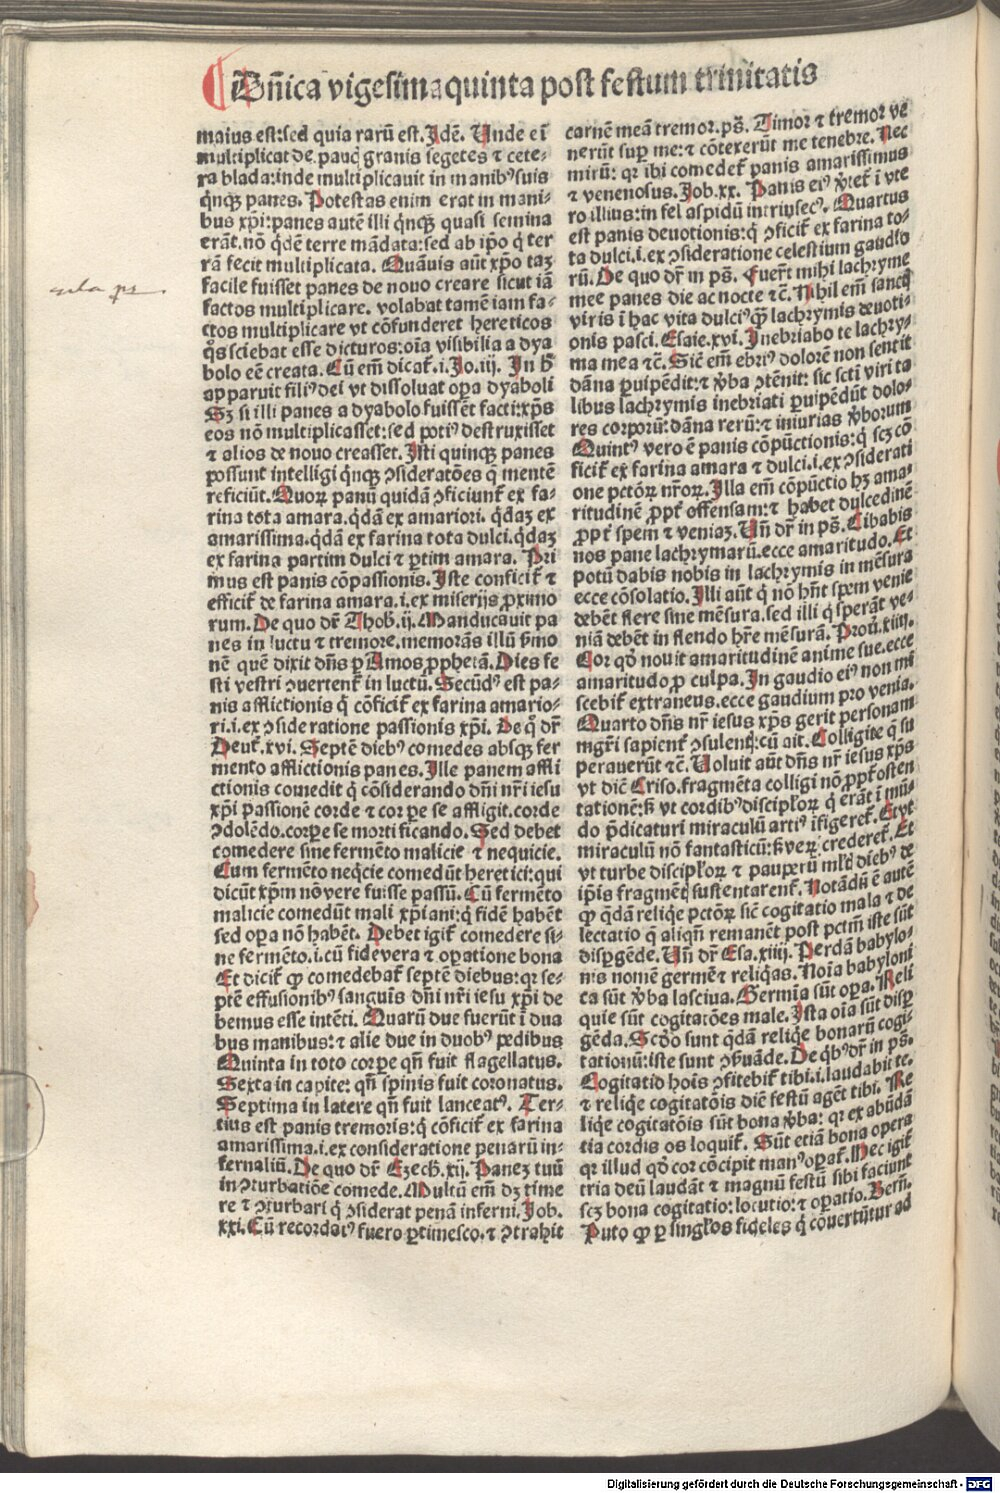 Dñica vigesimaquinta post festum trinitatis
maius est: sed quia rarū est. Idē. Unde eī
multiplicat de paucꝭ granis segetes ⁊ cete-
ra blada: inde multiplicauit in manibꝰ suis
qͥnqꝫ panes. Potestas enim erat in mani-
bus xp̄i: panes autē illi qͥnqꝫ quasi semina
erāt. nō qͥdē terre mādata: sed ab ip̄o qͥ ter
rā fecit multiplicata. Quāuis aūt xp̄o taꝫ
facile fuisset panes de nouo creare sicut iā
factos multiplicare. volabat tamē iam fa-
ctos multiplicare vt cōfunderet hereticos
qͦs sciebat esse dicturos: oīa visibilia a dya
bolo eē creata. Cū em̄ dicat̄. i. Jo. iij. In h̓
apparuit filiꝰ dei vt dissoluat oꝑa dyaboli
Sꝫ si illi panes a dyabolo fuissēt facti: xp̄s
eos nō multiplicasset: sed potiꝰ destruxisset
⁊ alios de nouo creasset. Isti quinqꝫ panes
possunt intelligi qͥnqꝫ ꝯsideratōes q̄ mentē
reficiūt. Quoꝝ panū quidā ꝯficiunt̄ ex fa-
rina tota amara. qͥdā ex amariori. qͥdaꝫ ex
amarissima. qͥdā ex farina tota dulci. qͥdaꝫ
ex farina partim dulci ⁊ ꝑtim amara. Pri
mus est panis cōpassionis. Iste conficit̄ ⁊
efficit̄ de farina amara. i. ex miserijs ꝓximo
rum. De quo dr̄ Thob. ij. Manducauit pa
nes in luctu ⁊ tremore. memorās illū ẜmo
nē quē dixit dn̄s ꝑ Amos ꝓphetā. Dies fe
sti vestri ꝯuertent̄ in luctū. Secūdꝰ est pa-
nis afflictionis q̄ cōficit̄ ex farina amario-
ri. i. ex ꝯsideratione passionis xp̄i. De qͦ dr̄
Deut̄. xvi. Septē diebꝰ comedes absqꝫ fer
mento afflictionis panes. Ille panem affli
ctionis comedit qͥ cōsiderando dn̄i nr̄i iesu
xp̄i passionē corde ⁊ corꝑe se affligit. corde
ꝯdolēdo. corꝑe se mortificando. Sed debet
comedere sine fermēto malicie ⁊ nequicie.
Cum fermēto neqͥcie comedūt heretici: qui
dicūt xp̄m nō vere fuisse passū. Cū fermēto
malicie comedūt mali xp̄iani: qͥ fidē habēt
sed oꝑa nō habēt. Debet igit̄ comedere si-
ne fermēto. i. cū fide vera ⁊ oꝑatione bona
Et dicit̄ ꝙ comedebat̄ septē diebus: qꝛ se-
ptē effusionibꝰ sanguīs dn̄i nr̄i iesu xp̄i de
bemus esse intēti. Quarū due fuerūt ī dua
bus manibus: ⁊ alie due in duobꝰ pedibus
Quinta in toto corꝑe qn̄ fuit flagellatus.
Sexta in capite: qn̄ spinis fuit coronatus.
Septima in latere qn̄ fuit lanceatꝰ. Ter-
tius est panis tremoris: qͥ cōficit̄ ex farina
amarissima. i. ex consideratione penarū in-
fernaliū. De quo dr̄ Ezech. xij. Paneꝫ tuū
in ꝯturbatiōe comede. Multū em̄ dꝫ time
re ⁊ ꝯturbari qͥ ꝯsiderat penā inferni. Job.
xxi. Cū recordatꝰ fuero ꝑtimesco. ⁊ ꝯtrahit
carnē meā tremor. ps̄. Timor ⁊ tremor ve
nerūt suꝑ me: ⁊ cōtexerūt me tenebre. Nec
mirū: qꝛ ibi comedet̄ panis amarissimus
⁊ venenosus. Job. xx. Panis eiꝰ v̓tet̄ ī vte
ro illius: in fel aspidū intrīsecꝰ. Quartus
est panis deuotionis: qͥ ꝯficit̄ ex farina to-
ta dulci. i. ex ꝯsideratione celestium gaudio
rū. De quo dr̄ in ps̄. Fuer̄t mihi lachryme
mee panes die ac nocte ⁊c̄. Nihil em̄ sanctꝭ
viris ī hac vita dulciꝰ qͣꝫ lachrymis deuoti-
onis pasci. Esaie. xvi. Inebriabo te lachry-
ma mea ⁊c̄. Sic̄ em̄ ebriꝰ dolorē non sentit
dāna ꝑuipēdit: ⁊ v̓ba ꝯtēnit: sic sc̄ti viri ta
libus lachrymis inebriati ꝑuipēdūt dolo-
res corporū: dāna rerū: ⁊ iniurias v̓borum
Quintꝰ vero ē panis cōpūctionis: qͥ scꝫ cō
ficit̄ ex farina amara ⁊ dulci. i. ex ꝯsiderati
one pctōꝝ nr̄oꝝ. Illa em̄ cōpūctio hꝫ ama-
ritudinē ꝓpt̄ offensam: ⁊ habet dulcedinē
ꝓpt̄ spem ⁊ veniaꝫ. Un̄ dr̄ in ps̄. Cibabis
nos pane lachrymarū. ecce amaritudo. Et
potū dabis nobis in lachrymis in mēsura
ecce cōsolatio. Illi aūt qͥ nō hn̄t spem venie
debēt flere sine mēsura. sed illi qͥ sperāt ve-
niā debēt in flendo hr̄e mēsurā. Prou̓. xiiij.
Cor qd̓ nouit amaritudinē anime sue. ecce
amaritudo ꝓ culpa. In gaudio eiꝰ non mi
scebit̄ extraneus. ecce gaudium pro venia.
Quarto dn̄s nr̄ iesus xp̄s gerit personam
mgr̄i sapient̄ ꝯsulentꝭ: cū ait. Colligite q̄ su
perauerūt ⁊c̄. Voluit aūt dn̄s nr̄ iesus xp̄s
vt dic̄ Criso. fragmēta colligi nō ꝓpt̄ osten
tationē: sꝫ vt cordibꝰ discipl̓oꝝ qͥ erāt ī mū-
do p̄dicaturi miraculū artiꝰ īfigeret̄. Et vt
miraculū nō fantasticū: sꝫ veꝝ crederet̄. Et
vt turbe discipl̓oꝝ ⁊ pauperū ml̓tꝭ diebꝰ de
ip̄is fragmētꝭ sustentarent̄. Notādū ē autē
ꝙ qͥdā reliqͥe pctōꝝ sic̄ cogitatio mala ⁊ de
lectatio q̄ aliqn̄ remanēt post pctm̄ iste sūt
disꝑgēde. Un̄ dr̄ Esa. xiiij. Perdā babylo-
nis nomē germē ⁊ reliqͥas. Noīa babyloni
ca sūt v̓ba lasciua. Germīa sūt oꝑa. Reli
quie sūt cogitatōes male. Ista oīa sūt disꝑ
gēda. Scd̓o sunt qͥdā reliqͥe bonarū cogi-
tationū: iste sunt ꝯẜuāde. De qͥbꝰ dr̄ in ps̄.
Cogitatio hoīs ꝯfitebit̄ tibi. i. laudabit te.
⁊ reliqͥe cogitatōis diē festū agēt tibi. Re
liqͥe cogitatōis sūt bona v̓ba: qꝛ ex abūdā
tia cordis os loquit̄. Sūt etiā bona opera
qꝛ illud qd̓ cor cōcipit manꝰ oꝑat̄. Nec igit̄
tria deū laudāt ⁊ magnū festū sibi faciunt
scꝫ bona cogitatio: locutio: ⁊ oꝑatio. Bern̄.
Puto ꝙ ꝑ singl̓os fideles qͥ cōuertūtur ad
Digitalisierung gefördert durch die Deutsche Forschungsgemeinschaft - DFG